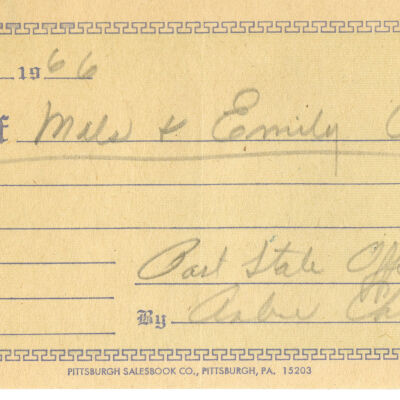 1966
f Mals & Emily
Past State Off
By
PITTSBURGH SALESBOOK CO., PITTSBURGH, PA. 15203